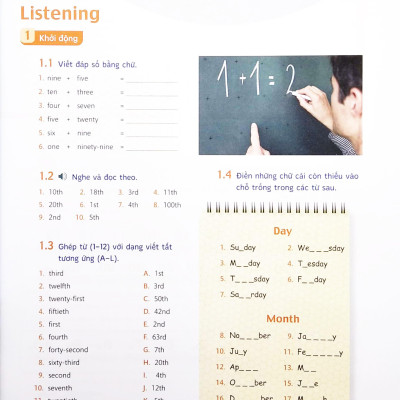 Listening
1 Khởi động
1.1 Viết đáp số bằng chữ.
1. nine + five = ____________
2. ten + three = ____________
3. four + seven = ____________
4. five + twenty = ____________
5. six + nine = ____________
6. one + ninety-nine = ____________
1.2 Nghe và đọc theo.
1. 10th 2. 18th 3. 3rd 4. 11th
5. 20th 6. 1st 7. 4th 8. 100th
9. 2nd 10. 5th
1.3 Ghép từ (1–12) với dạng viết tắt
tương ứng (A–L).
1. third A. 1st
2. twelfth B. 3rd
3. twenty-first C. 50th
4. fiftieth D. 42nd
5. first E. 2nd
6. fourth F. 63rd
7. forty-second G. 7th
8. sixty-third H. 20th
9. second I. 4th
10. seventh J. 12th
11. twentieth K. 5th
1 + 1 = 2
1.4 Điền những chữ cái còn thiếu vào
chỗ trống trong các từ sau.
Day
1. Su_day 2. We_ _ _sday
3. M_ _day 4. T_esday
5. T_ _ _sday 6. F_ _day
7. Sa_ _rday
Month
8. No_ _ _ber 9. Ja_ _ _ _y
10. Ju_y 11. Fe_ _ _ _ _y
12. Ap_ _ _ 13. M_ _
14. O_ _ _ber 15. J_ _e